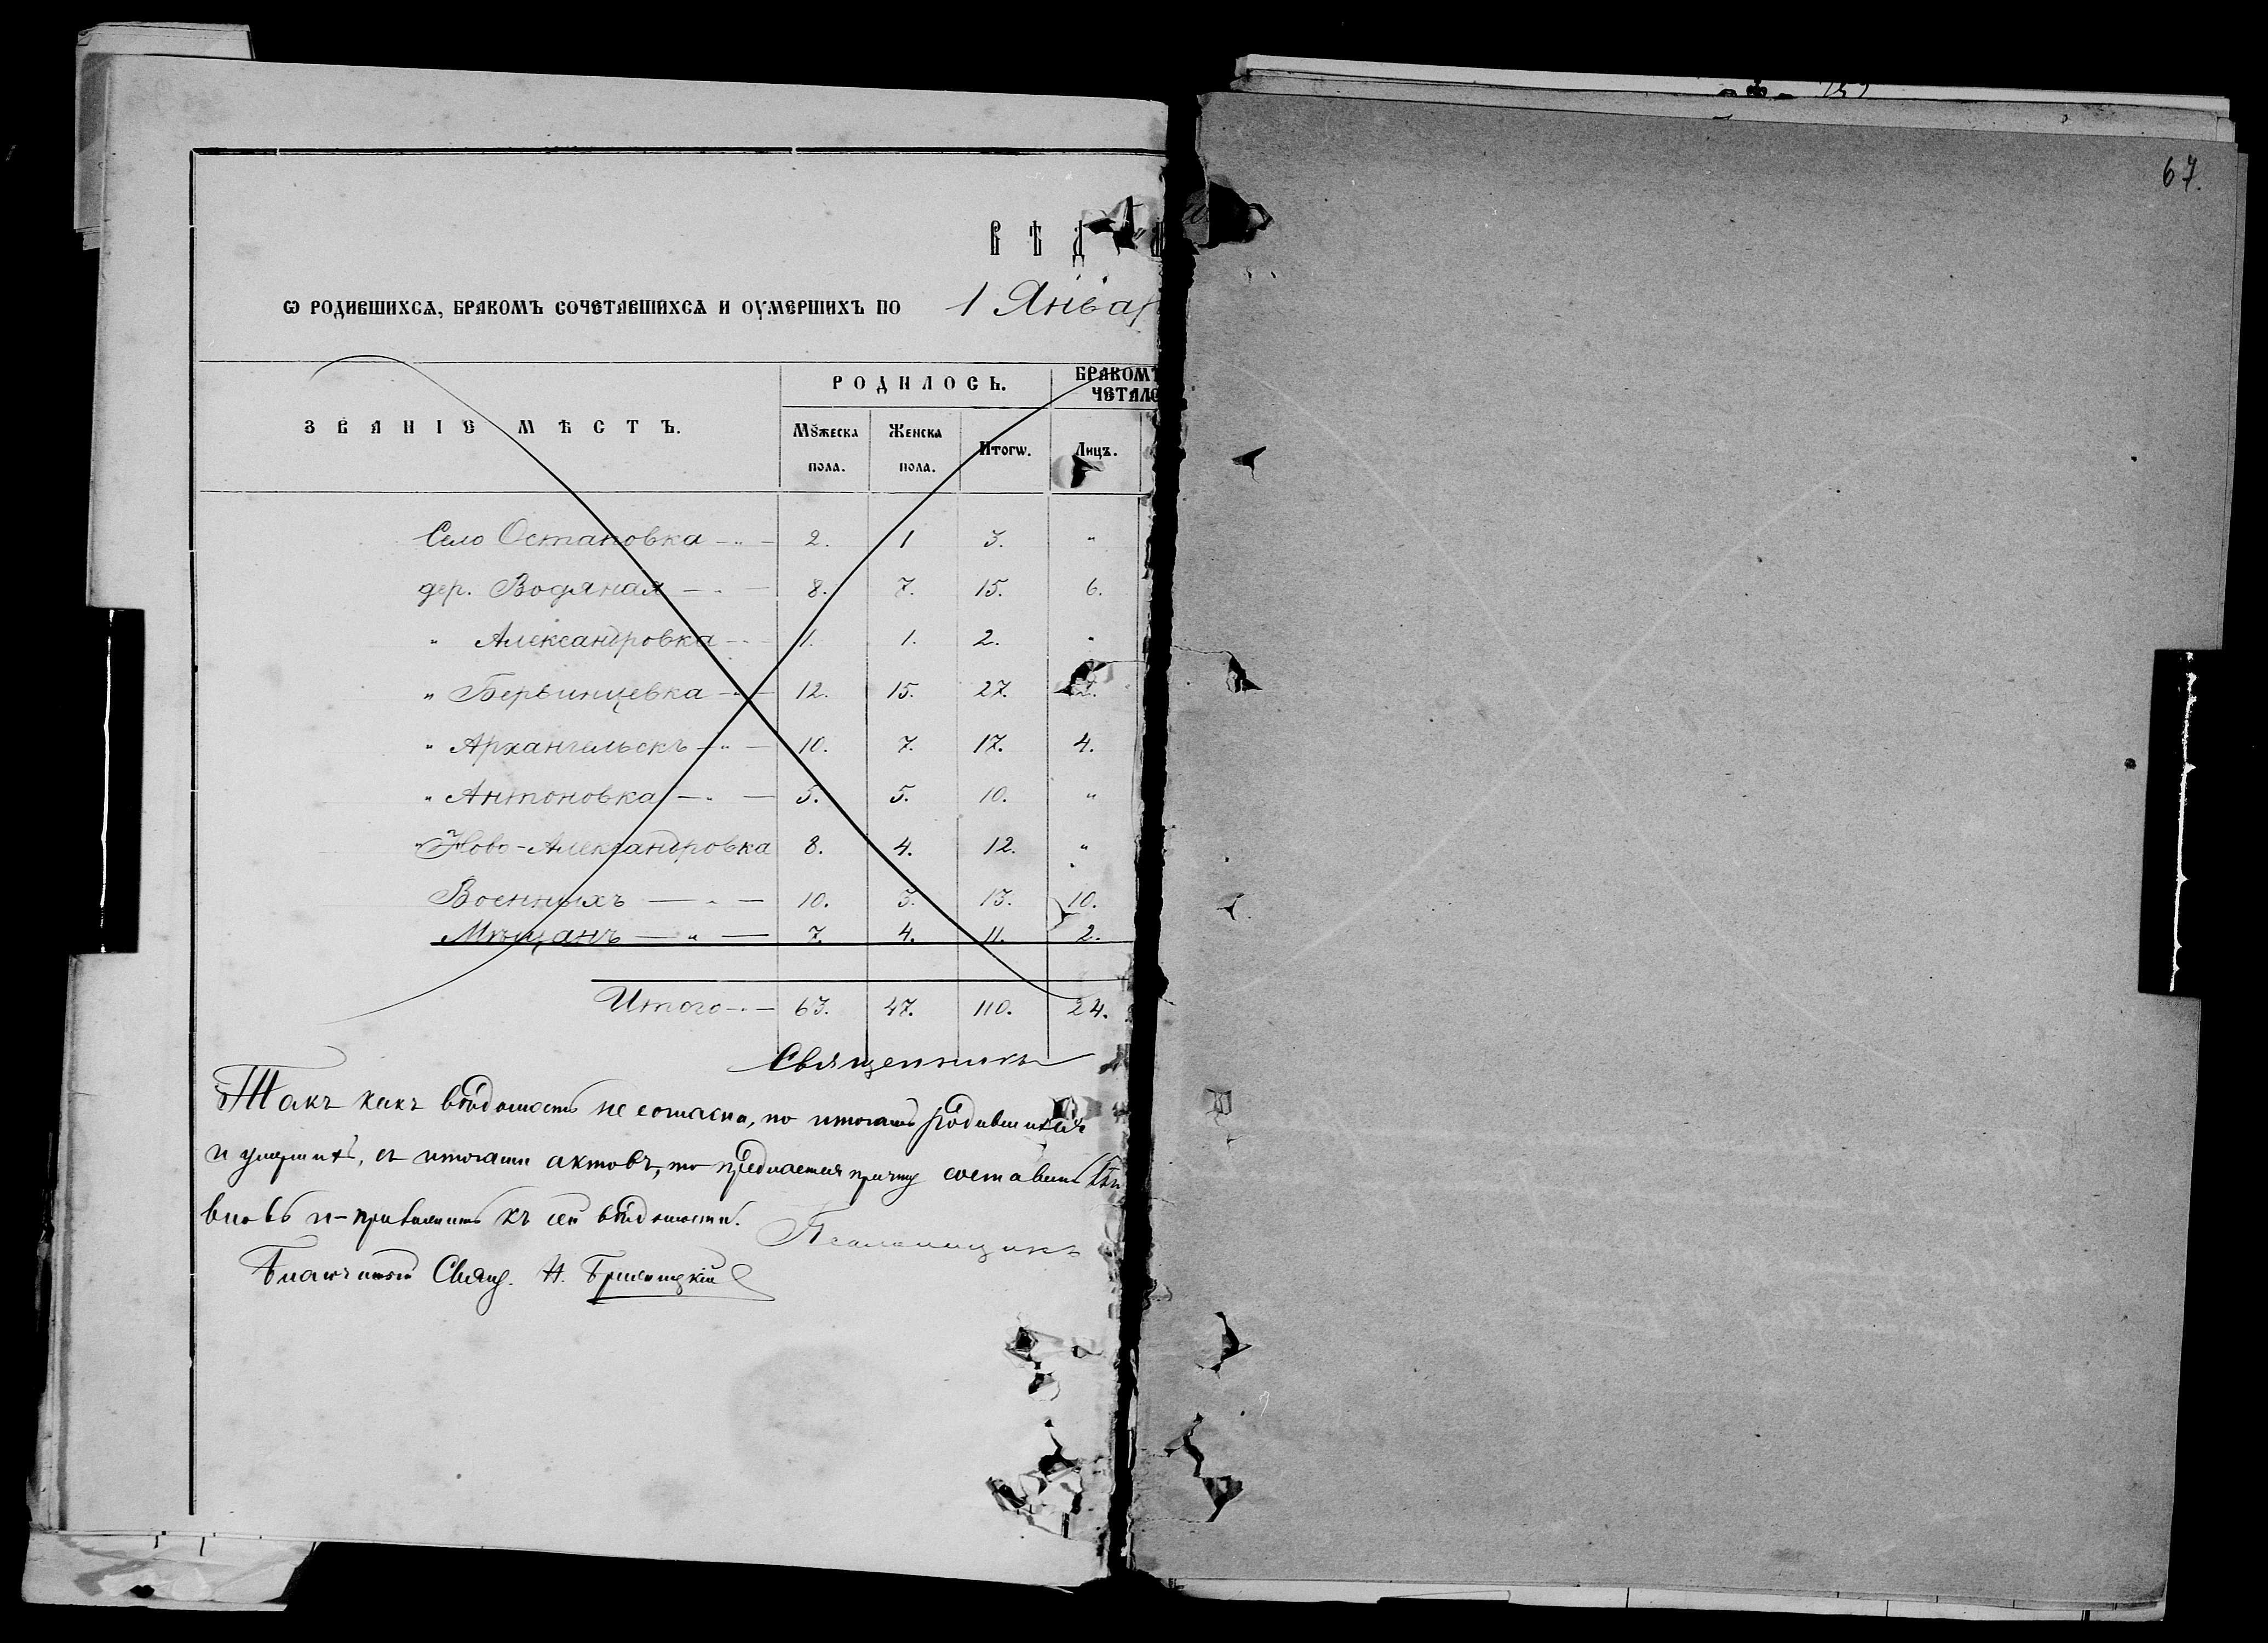 67.
ВѢД
Ѡ РОДИВШИХСѦ, БРАКОМЪ СОЧЕТАВШИХСѦ И ОУМЕРШИХЪ ПО 1 Январ
ЗВАНІЕ МѢСТЪ. РОДИЛОСЬ. БРАКОМЪ
ЧЕТАЛО
МꙊЖЕСКА ПОЛА. ЖЕНСКА ПОЛА. ИТОГѠ. ЛИЦЪ.
Село Остановка — „ — 2. 1 3. „
дер. Водяная — „ — 8. 7. 15. 6.
„ Александровка — „ — 1. 1. 2. „
„ Бервинцевка — „ — 12. 15. 27. 2.
„ Архангельскъ — „ — 10. 7. 17. 4.
„ Антоновка — „ — 5. 5. 10. „
„ Ново-Александровка 8. 4. 12. „
Военныхъ — „ — 10. 3. 13. 10.
Мѣщанъ — „ — 7. 4. 11. 2.
Итого — „ — 63. 47. 110. 24.
Священникъ
Такъ какъ вѣдомость не согласна, по итогамъ родившихся
и умершихъ, съ итогами актовъ, то предлагается причту составить
вновь и приложить къ сей вѣдомости.
Псаломщикъ
Благочинный Свящ. Н.